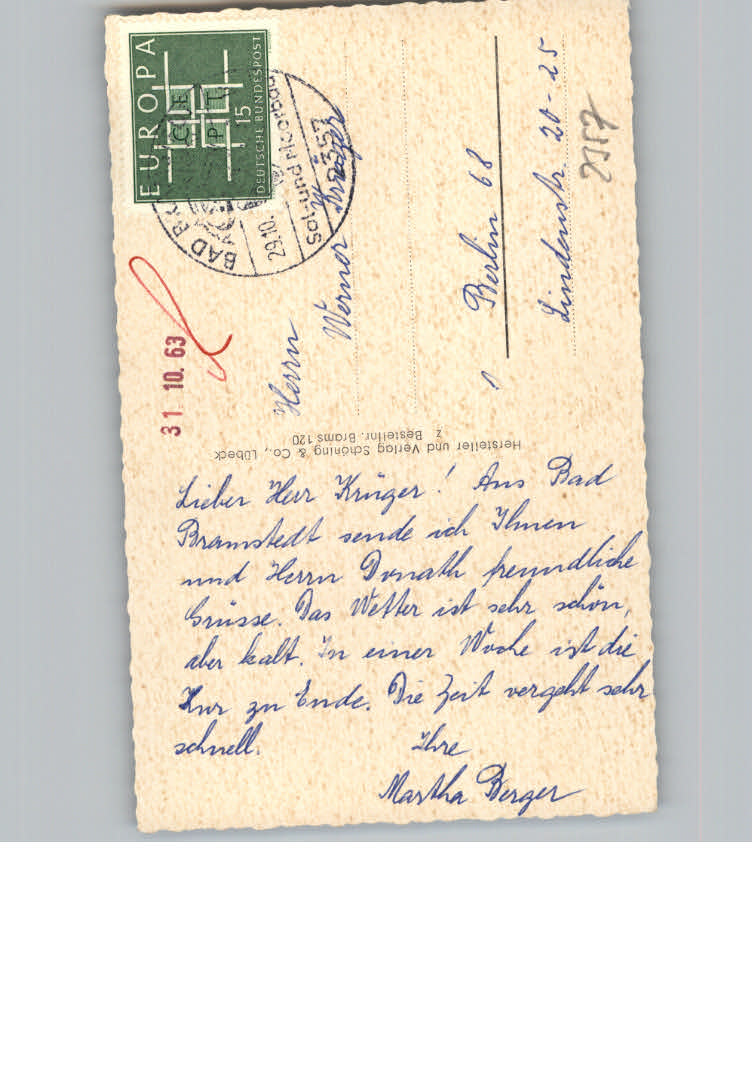 EUROPA
15
DEUTSCHE BUNDESPOST
CE
PT
BAD
29.10.
Sol- und Moorbad
2357
31. 10. 63
Herrn
Werner Krüger
Berlin 68
Lindenstr. 20-25
2357
Hersteller und Verlag Schöning & Co., Lübeck
Z Bestellnr. Brams 120
Lieber Herr Krüger! Aus Bad
Bramstedt sende ich Ihnen
und Herrn Donath freundliche
Grüsse. Das Wetter ist sehr schön,
aber kalt. In einer Woche ist die
Kur zu Ende. Die Zeit vergeht sehr
schnell. Ihre
Martha Berger